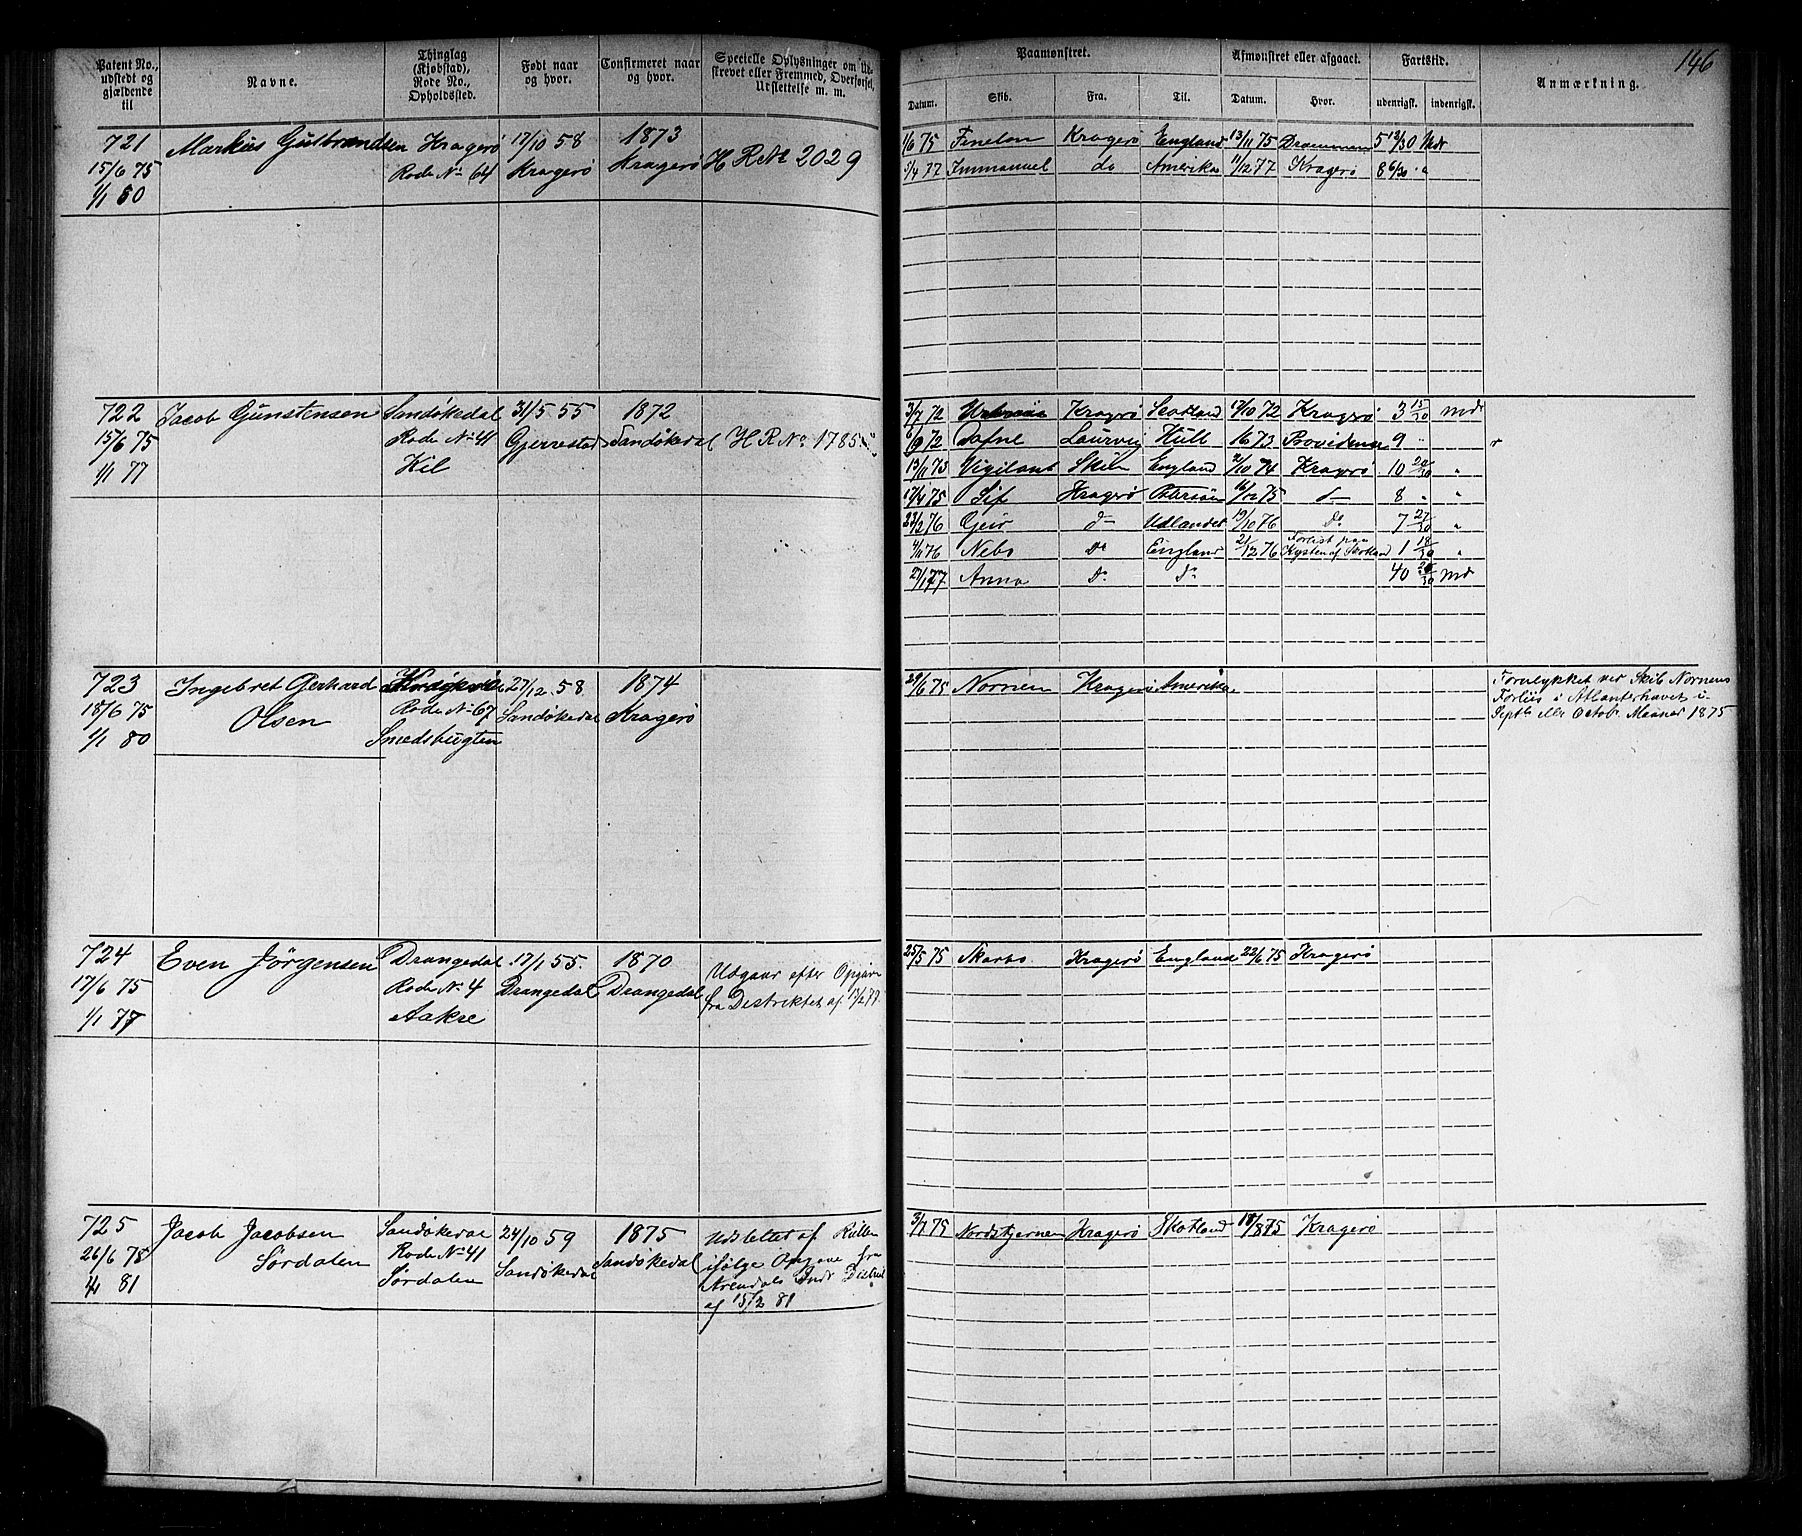 146
Patent No., udstedt og gjældende til
Navne.
Thinglag (Kjøbstad), Rode No., Opholdssted.
Født naar og hvor.
Confirmeret naar og hvor.
Specielle Oplysninger om Ud-
skrevet eller Fremmed, Overførsel,
Udslettelse m. m.
Paamønstret.
Afmønstret eller afgaaet.
Fartstid.
Anmærkning.
Datum. Skib. Fra. Til. Datum. Hvor. udenrigsk. indenrigsk.
721 Markus Gulbrandsen Kragerø 17/10 58 1873
15/6 75 Rode No 64 Kragerø Kragerø H R No 2029
1/1 80
1/6 75 Fenelon Kragerø England 13/11 75 Drammen 5 12/30 Mdr
5/4 77 Immanuel do Amerika 11/12 77 Kragerø 8 6/30
722 Jacob Gunstensen Sandøkedal 31/5 55 1872
15/6 75 Rode No 41 Gjerrestad Sandøkedal H R No 1785
1/1 77 Kil
3/7 72 Kragerø Scotland 17/10 72 Kragerø 3 15/30 Mdr
6/9 72 Dafne Laurvig Hull 16 73 Providence 9 "
13/11 73 Vigilant Skien England 2/10 74 Kragerø 10 20/30 "
17/4 75 Sif Kragerø 16/12 75 d— 8 " "
23/2 76 Geir d— Udlandet 19/10 76 Do 7 27/30 "
4/11 76 Nebo Do England 21/12 76 Forlist paa Kysten af Skotland 1 18/30 "
27/1 77 Anna Do Do 40 26/30 Mdr
723 Ingebret Gerhard 27/12 58 1874
18/6 75 Olsen Rode No 67 Sandøkedal Kragerø
1/1 80 Smedsbugten
29/6 75 Nornen Kragerø Amerika
Forulykket ved Skib Nornens
Forliis i Atlanterhavet i
Septb eller Octob. Maaned 1875
724 Even Jørgensen Drangedal 17/1 55. 1870
17/6 75 Rode No 4 Drangedal Drangedal
1/1 77 Aakre
Udgaar efter Opgave
fra Distriktet af 17/2 77
25/5 75 Skarbo Kragerø England 22/6 75 Kragerø
725 Jacob Jacobsen Sandøkedal 24/10 59 1875
26/6 75 Sørdalen Rode No 41 Sandøkedal Sandøkedal
1/1 81 Sørdalen
Udslettet af Rullen
ifølge Opgave fra
Arendals Indr Distrikt
af 15/2 81
3/7 75 Nordstjernen Kragerø Skotland 18/8 75 Kragerø